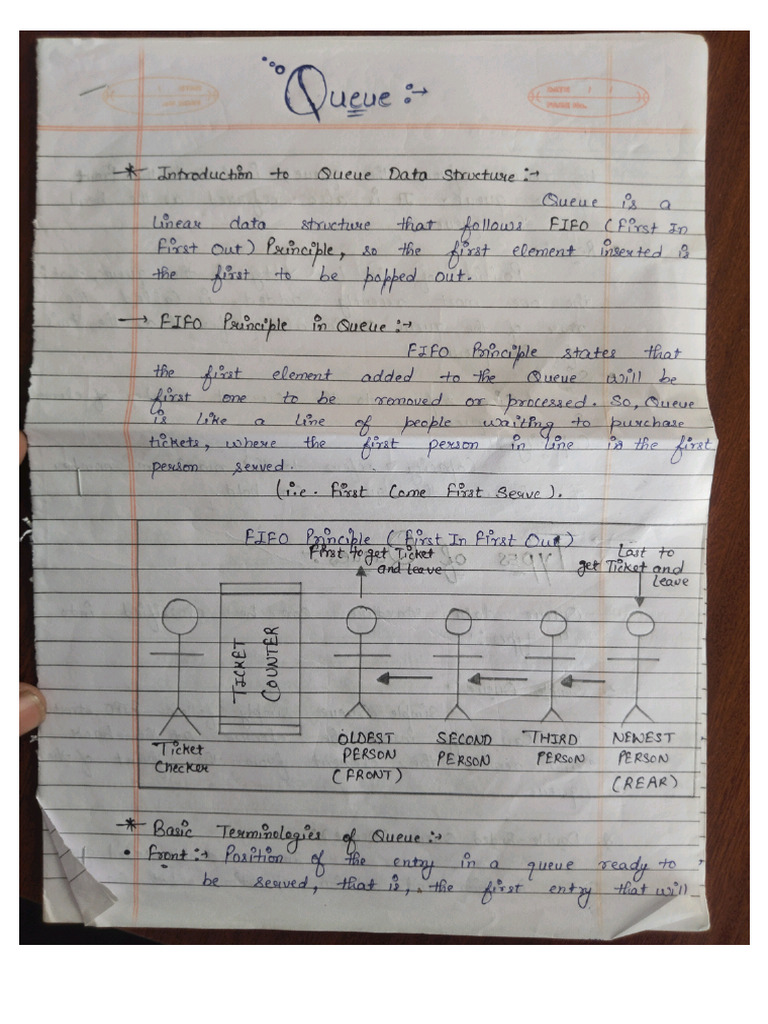 Queue :→
DATE / /
PAGE No.
* Introduction to Queue Data Structure :→
Queue is a
linear data structure that follows FIFO (First In
First Out) Principle, so the first element inserted is
the first to be popped out.
→ FIFO Principle in Queue :→
FIFO Principle states that
the first element added to the Queue will be
first one to be removed or processed. So, Queue
is like a line of people waiting to purchase
tickets, where the first person in line is the first
person served.
(i.e. First Come First Serve).
FIFO Principle (First In First Out)
First to get Ticket
and leave
Last to
get Ticket and
leave
TICKET
COUNTER
Ticket
Checker
OLDEST
PERSON
(FRONT)
SECOND
PERSON
THIRD
PERSON
NEWEST
PERSON
(REAR)
* Basic Terminologies of Queue :→
• Front :→ Position of the entry in a queue ready to
be served, that is, the first entry that will